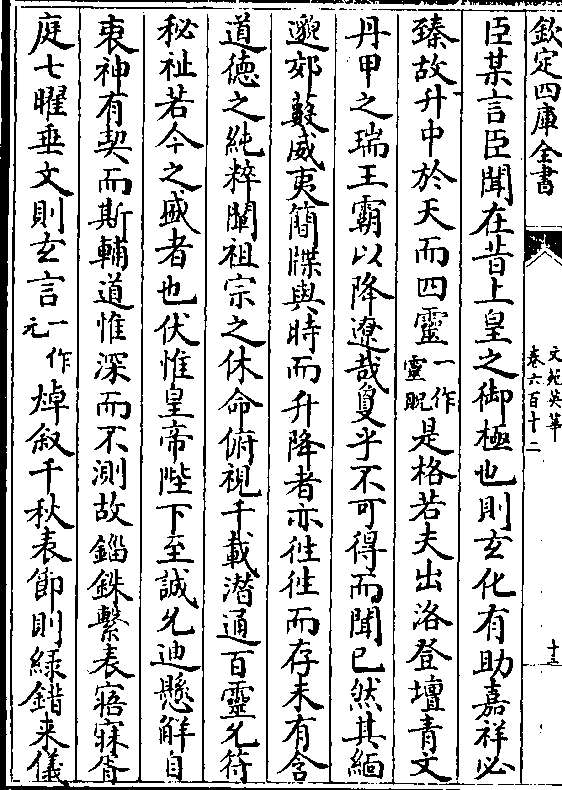 欽定四庫全書
文苑英華
卷六百十二
十三
臣某言臣聞在昔上皇之御極也則玄化有助嘉祥必
臻故升中於天而四靈一作靈貺是格若夫出洛登壇青文
丹甲之瑞王霸以降遼哉敻乎不可得而聞已然其緬
邈郊藪威夷簡牒與時而升降者亦徃徃而存未有含
道德之純粹闡祖宗之休命俯視千載潜通百靈允符
秘祉若今之盛者也伏惟皇帝陛下至誠允迪懸解自
衷神有契而斯輔道惟深而不測故錙銖繫表寤寐胥
庭七曜垂文則玄言一作元焯叙千秋表節則緑錯来儀